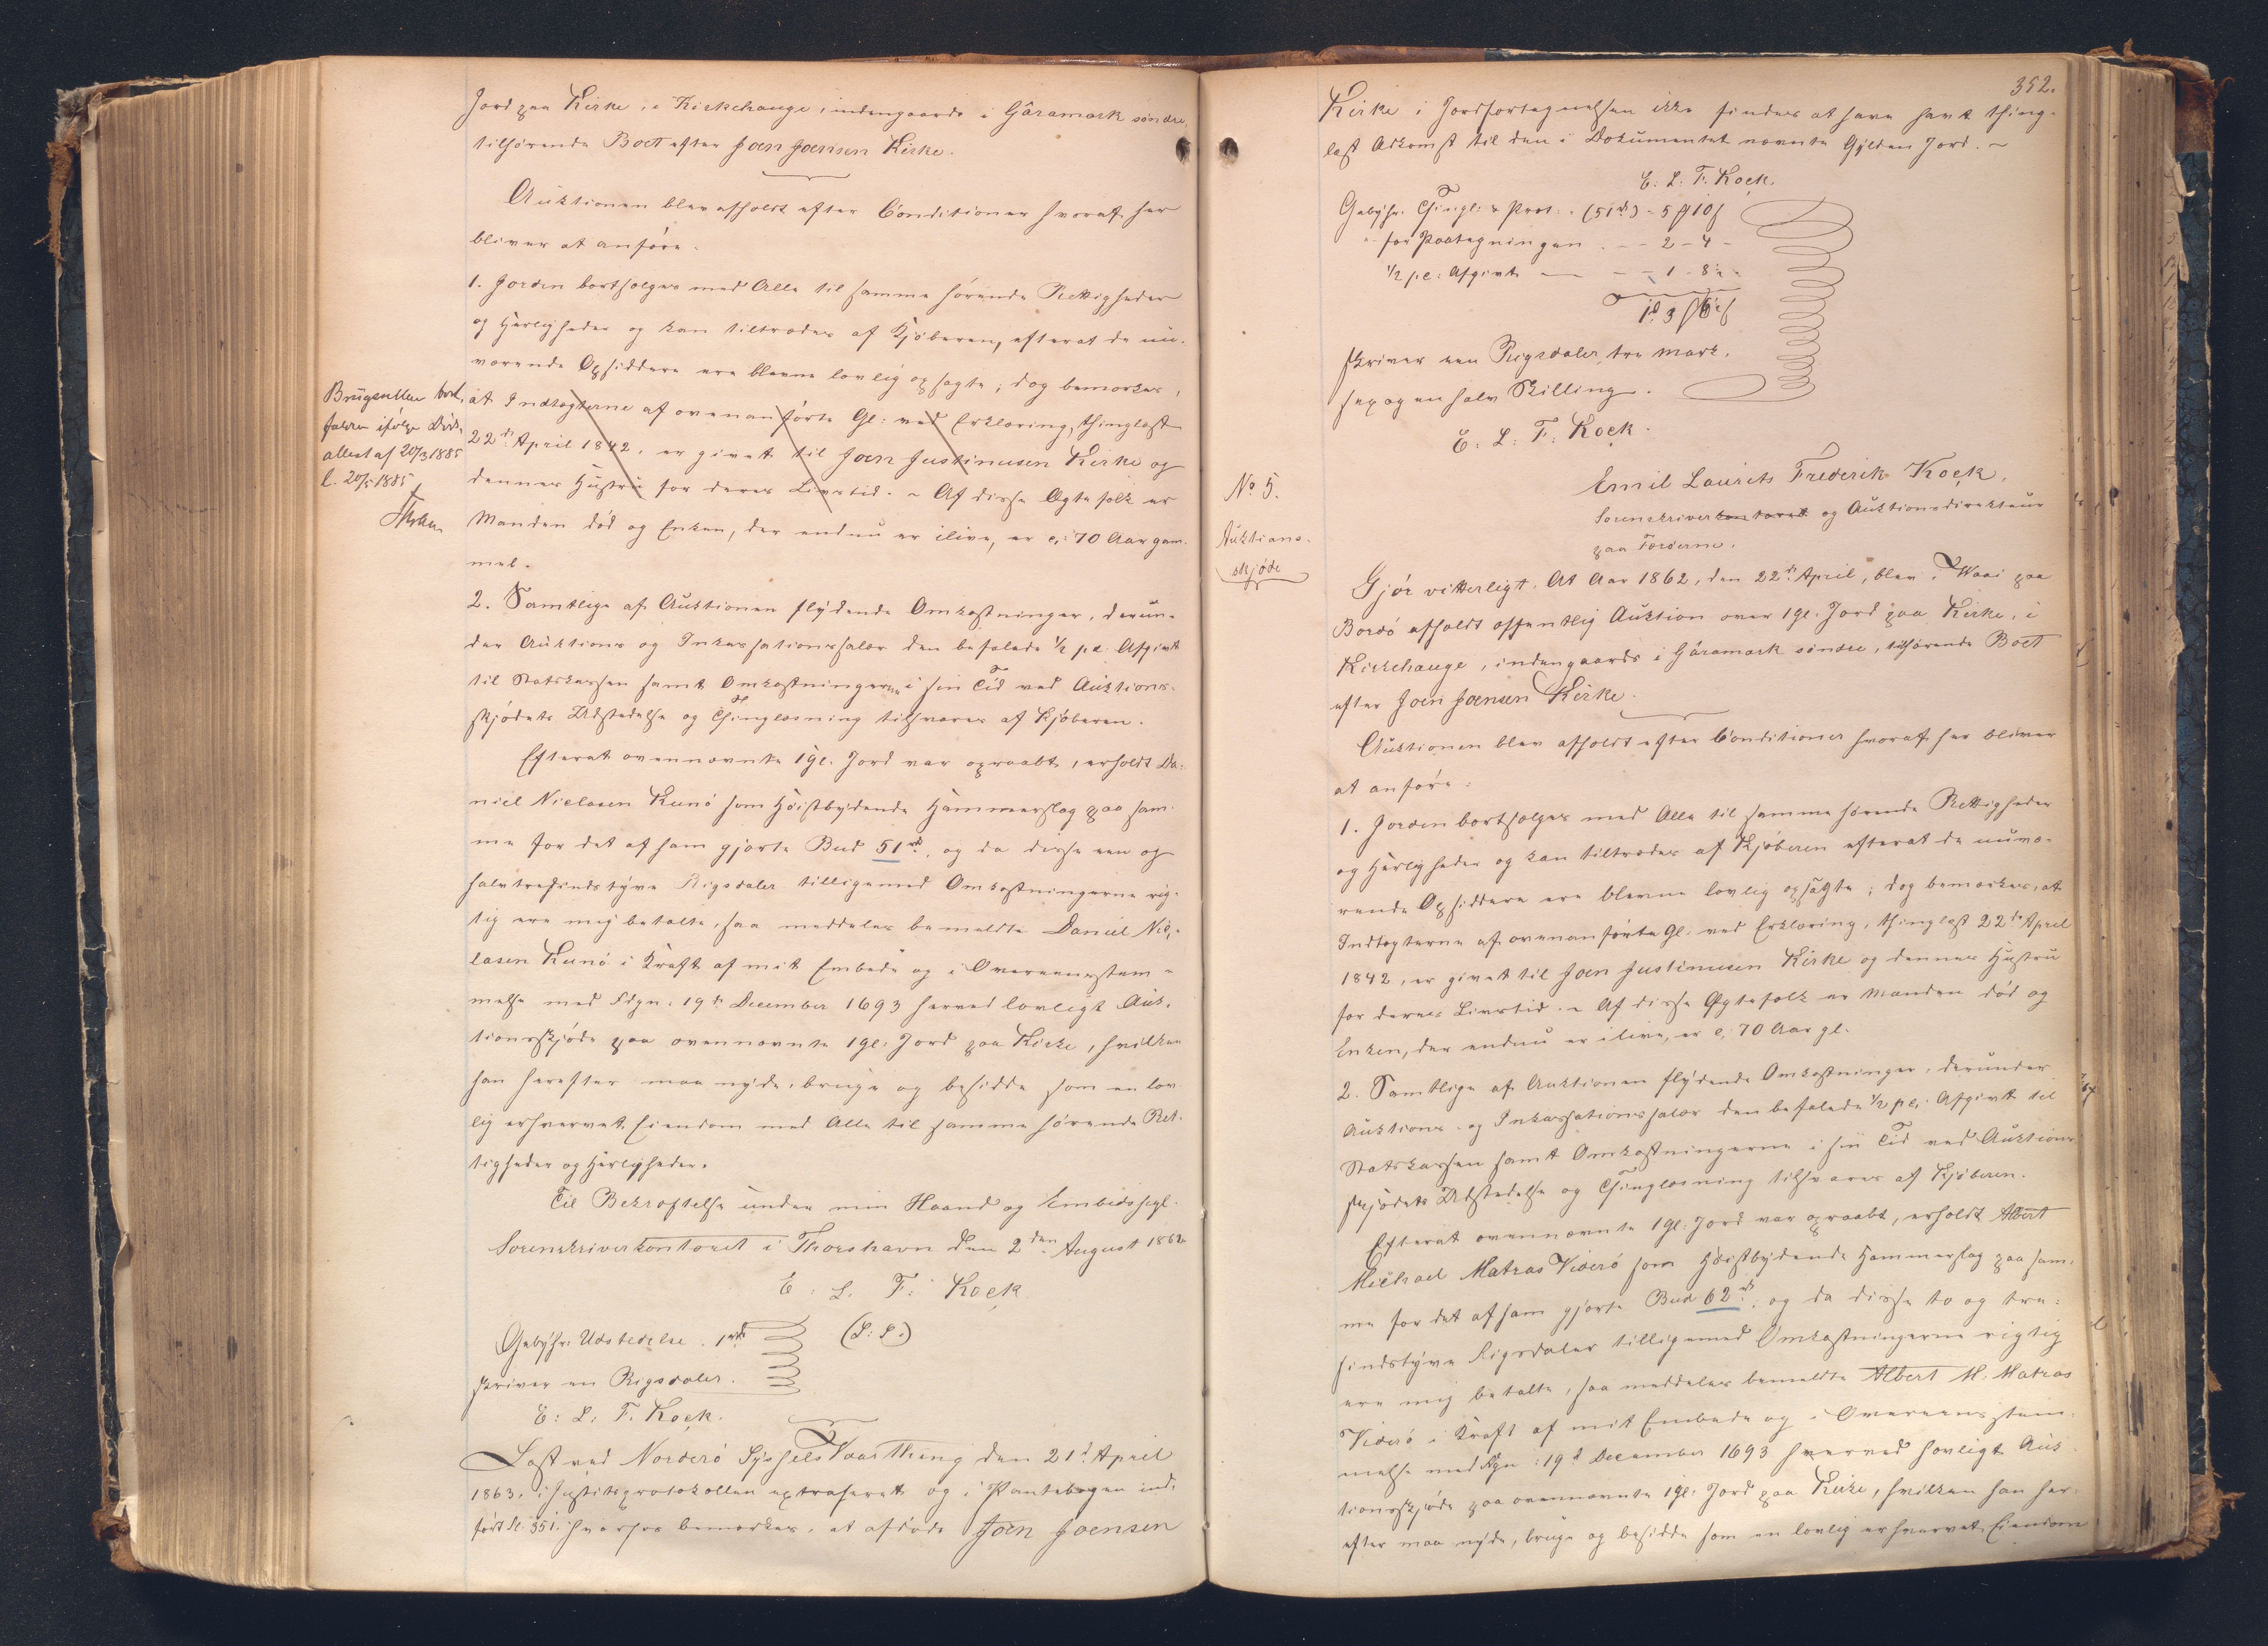 Jord paa Kirke, i Kirkehauge, indengaards i Gåramark søndre,
tilhørende Boet efter Joen Joensen Kirke.
Auktionen blev afholdt efter Conditioner hvoraf her
bliver at anføre.
1. Jorden bortsælges med Alle til samme hørende Rettigheder
og Herligheder og kan tiltrædes af Kjøberen, efterat de nu-
værende Opsiddere ere blevne lovlig opsagte; dog bemærkes,
at Indtægterne af ovenanførte Gl: ved Erklæring, thinglæst
22de April 1842, er givet til Joen Justinusen Kirke og
dennes Hustru for deres Livstid. - Af disse Ægtefolk er
Manden død og Enken, der endnu er ilive, er c: 70 Aar gam-
mel.
Brugsretten bort-
falden ifølge Døds-
attest af 20/3 1885
l. 20/5 1885
2. Samtlige af Auktionen flydende Omkostninger, derun-
der Auktions og Inkassationssalær den befalede 1/2 pc. Afgivt
til Statskassen samt Omkostningerne i sin Tid ved Auktions-
skjødets Udstedelse og Thinglæsning tilsvares af Kjøberen.
Efterat ovennævnte 1 gl. Jord var opraabt, erholdt Da-
niel Nielasen Kunø som Høistbydende Hammerslag paa sam-
me for det af ham gjorte Bud 51 rd, og da disse een og
halvtredsindstyve Rigsdaler tilligemed Omkostningerne rig-
tig ere mig betalte, saa meddeles bemeldte Daniel Nie-
lasen Kunø i Kraft af mit Embede og i Overeensstem-
melse med Fdgn: 19de December 1693 herved lovligt Auk-
tionsskjøde paa ovennævnte 1 gl: Jord paa Kirke, hvilken
han herefter maa nyde, bruge og besidde som en lov-
lig erhvervet Eiendom med Alle til samme hørende Ret-
tigheder og Herligheder.
Til Bekræftelse under min Haand og Embedssegl.
Sorenskriverkontoret i Thorshavn den 2den August 1862
E: L. F: Kock
(L: S.)
Gebyhr: Udstedelse. 1 rd
skriver en Rigsdaler.
E: L: F. Kock.
Læst ved Norderø Syssels Vaarthing den 21d April
1863, i Justitsprotokollen extraheret og i Pantebogen ind-
ført fl. 351. hvorhos bemærkes, at afdøde Joen Joensen
352.
Kirke i Jordfortegnelsen ikke findes at have havt thing-
læst Adkomst til den i Dokumentet nævnte Gylden Jord. ~
E: L: F. Kock.
Gebyhr. Thingl: & Prot: . (51 rd) - 5 # 10 ß
" for Paategningen . - - 2 - 4 -
1/2 pc: Afgivt — - - 1 - 8 1/2 -
1 rd 3 # 6 1/2 ß
skriver een Rigsdaler, tre Mark,
sex og en halv Skilling.
E: L: F: Kock.
No 5.
Auktions-
skjøde
Emil Laurits Frederik Kock,
Sorenskriverkontoret og Auktionsdirekteur
paa Færøerne.
Gjør vitterligt: At Aar 1862, den 22de April, blev i Waai paa
Bordø afholdt offentlig Auktion over 1 gl. Jord paa Kirke, i
Kirkehauge, indengaards i Gåramark søndre, tilhørende Boet
efter Joen Joensen Kirke.
Auktionen blev afholdt efter Conditioner hvoraf her bliver
at anføre:
1. Jorden bortsælges med Alle til samme hørende Rettigheder
og Herligheder og kan tiltrædes af Kjøberen efterat de nuvæ-
rende Opsiddere ere blevne lovlig opsagte; dog bemærkes, at
Indtægterne af ovenanførte Gl. ved Erklæring, thinglæst 22de April
1842, er givet til Joen Justinusen Kirke og dennes Hustru
for deres Livstid. - Af disse Ægtefolk er Manden død og
Enken, der endnu er ilive, er c: 70 Aar gl.
2. Samtlige af Auktionen flydende Omkostninger, derunder
Auktions- og Inkassationssalær den befalede 1/2 pc: Afgivt til
Statskassen samt Omkostningerne i sin Tid ved Auktions-
skjødets Udstedelse og Thinglæsning tilsvares af Kjøberen.
Efterat ovennævnte 1 gl: Jord var opraabt, erholdt Albert
Michael Matras Viderø som Høistbydende Hammerslag paa sam-
me for det af ham gjorte Bud 62 rd, og da disse to og tre-
sindstyve Rigsdaler tilligemed Omkostningerne rigtig
ere mig betalte, saa meddeles bemeldte Albert M. Matras
Viderø i Kraft af mit Embede og i Overeensstem-
melse med Fdgn: 19d December 1693 herved lovligt Auk-
tionsskjøde paa ovennævnte 1 gl: Jord paa Kirke, hvilken han her-
efter maa nyde, bruge og besidde som en lovlig erhvervet Eiendom